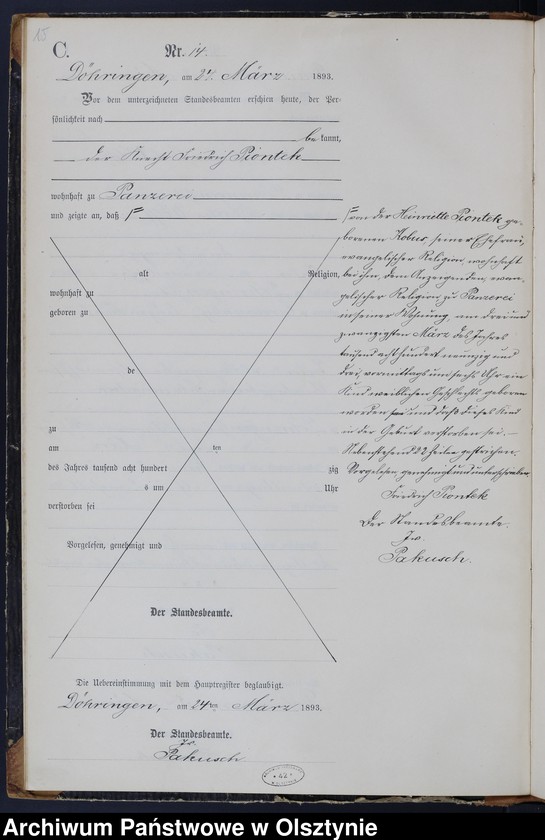 15
C.
Nr. 14.
Döhringen, am 24. März 1893.
Vor dem unterzeichneten Standesbeamten erschien heute, der Per-
sönlichkeit nach
be kannt,
der Knecht Friedrich Piontek
wohnhaft zu Panzerei
und zeigte an, daß
alt Religion,
wohnhaft zu
geboren zu
de
zu
am ten
des Jahres tausend acht hundert zig
s um Uhr
verstorben sei
Vorgelesen, genehmigt und
Der Standesbeamte.
von der Heinriette Piontek ge-
borenen Kobus, seiner Ehefrau,
evangelischer Religion, wohnhaft
bei ihm, dem Anzeigenden, evan-
gelischer Religion zu Panzerei
in seiner Wohnung, am drei und
zwanzigsten März des Jahres
tausend acht hundert neunzig und
drei, vormittags um sechs Uhr ein
Kind weiblichen Geschlechts geboren
worden und daß dieses Kind
in der Geburt verstorben sei.—
Nebenstehend 22 Zeilen gestrichen.
Vorgelesen, genehmigt und unterschrieben
Friedrich Piontek
Der Standesbeamte.
Pakusch.
Die Uebereinstimmung mit dem Hauptregister beglaubigt.
Döhringen, am 24ten März 1893.
Der Standesbeamte.
Pakusch
42
Archiwum Państwowe w Olsztynie